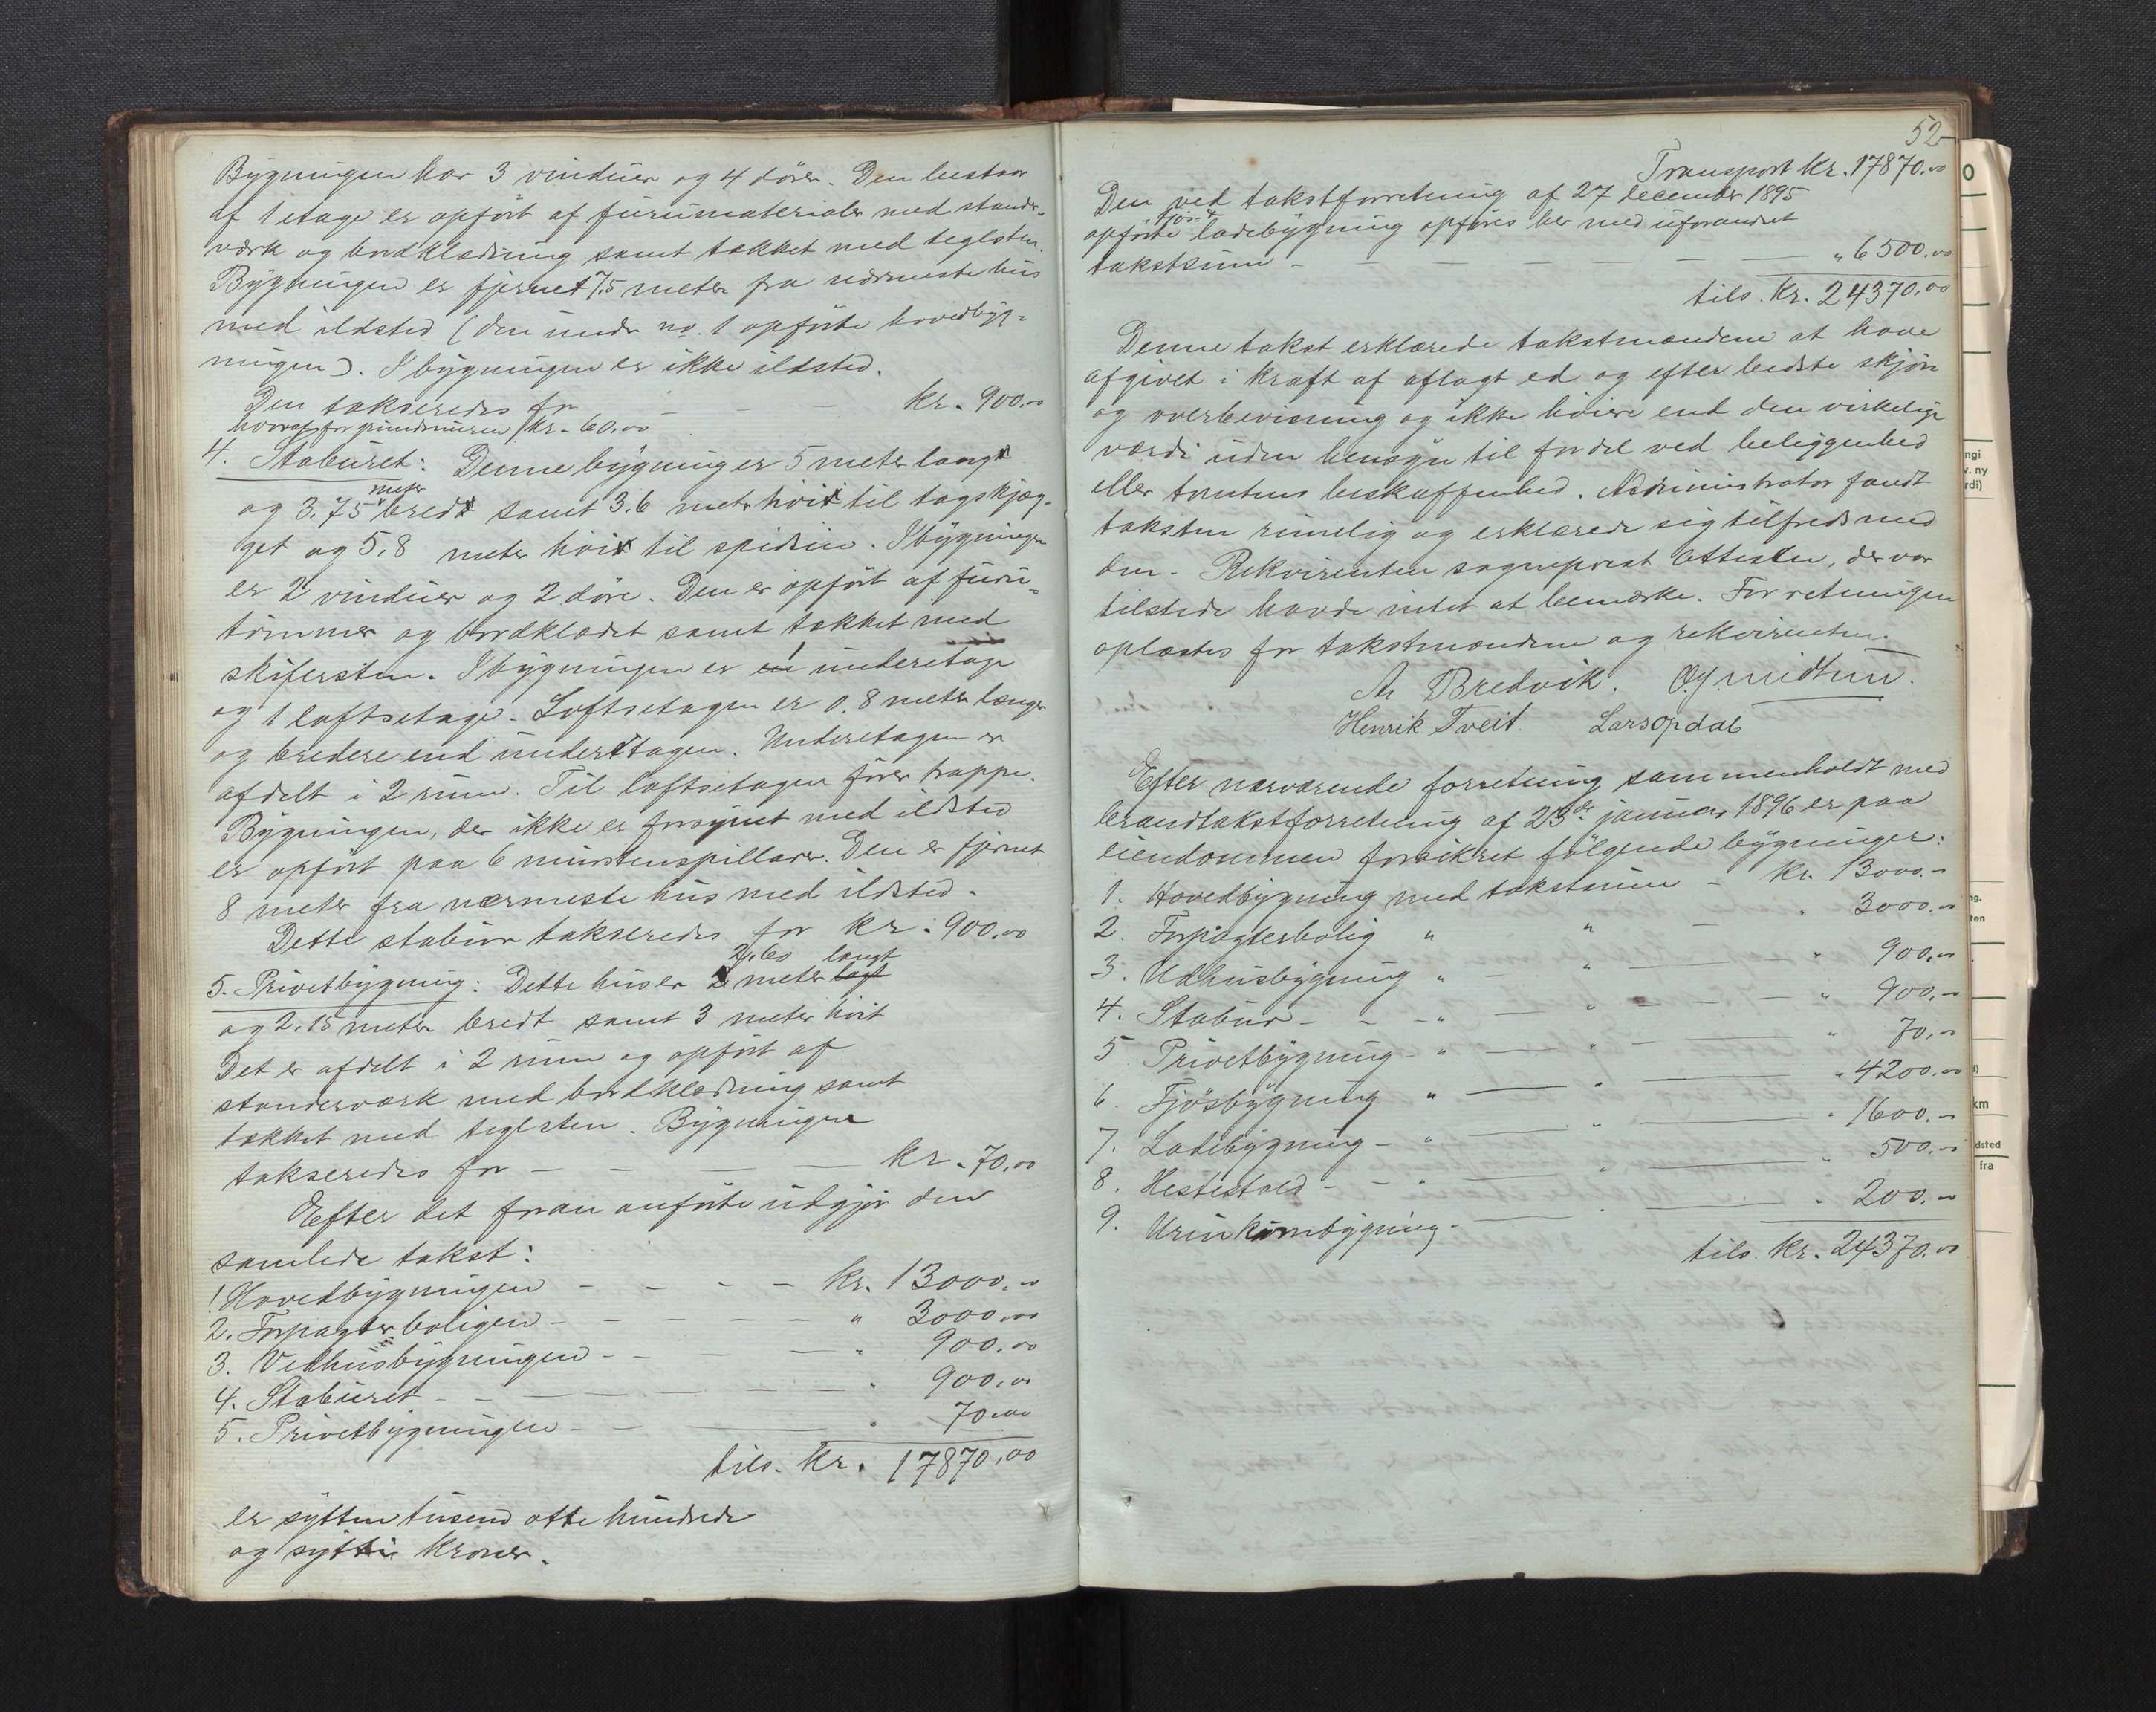 Bygningen har 3 vinduer og 4 döre. Den bestaar
af 1 etage er opfört af furumaterialer med stander-
værk og bordklædning samt tækket med teglsten.
Bygningen er fjernet 7,5 meter fra nærmeste hus
med ildsted (den under no. 1 opförte hovedbyg-
ningen). I bygningen er ikke ildsted.
Den takseredes for - - - kr. 900.00
hvoraf for grundmuren kr. 60.00
4. Staburet: Denne bygning er 5 meter lang
og 3.75 meter bred samt 3.6 meter höi til tagskjæg-
get og 5,8 meter höi til spidsen. I bygningen
er 2 vinduer og 2 döre. Den er opfört af furu-
tömmer og bordklædt samt tækket med
skifersten. I bygningen er 1 underetage
og 1 loftsetage. Loftsetagen er 0.8 meter længer
og bredere end underetagen. Underetagen er
afdelt i 2 rum. Til loftsetagen förer trappe.
Bygningen, der ikke er forsynet med ildsted
er opfört paa 6 murstenspillarer. Den er fjernet
8 meter fra nærmeste hus med ildsted.
Dette stabur takseredes for kr. 900.00
2,60 langt
5. Privetbygning: Dette hus er meter lagt
og 2.15 meter bredt samt 3 meter höit
Det er afdelt i 2 rum og opfört af
standerværk med bordklædning samt
tækket med teglsten. Bygningen
takseredes for - - - kr. 70,00
Efter det foran anförte udgjör den
samlede takst:
1. Hovedbygningen - - - - kr. 13000.00
2. Forpagterboligen - - - - - " 3000.00
3. Vedhusbygningen - - - - " 900.00
4. Staburet - - - - - - " 900.00
5. Privetbygningen - - - " 70.00
tils. kr. 17870,00
er sytten tusend otte hundrede
og sytti kroner.
52
Transport kr. 17870.00
Den ved takstforretning af 27 december 1895
fjös- &
opförte ladebygning opföres her med uforandret
takstsum - - - - - " 6500.00
tils. kr. 24370,00
Denne takst erklærede takstmændene at have
afgivet i kraft af aflagt ed og efter bedste skjön
og overbevisning og ikke höiere end den virkelige
værdi uden hensyn til fordel ved beliggenhed
eller tomtens beskaffenhed. Administrator fandt
taksten rimelig og erklærede sig tilfreds med
den. Rekvirenten sogneprest Ottesen, der var
tilstede havde intet at bemærke. Forretningen
oplæstes for takstmændene og rekvirenten.
A. Bredvik. O. J. Midtun.
Henrik Tveit. Lars Opdal
Efter nærværende forretning sammenholdt med
brandtakstforretning af 23de januar 1896 er paa
eiendommen forsikret fölgende bygninger:
1. Hovedbygning med takstsum - kr. 13000.-
2. Forpagterbolig " " - " 3000.-
3. Udhusbygning " - " - " 900.00
4. Stabur - - - " - " - - - " 900.-
5 Privetbygning - " - " - - " 70.-
6. Fjösbygning " - " - " 4200.00
7. Ladebygning - " - " - " 1600.-
8. Hestestald - - " - " - " 500.-
9. Urinkumbygning - - " - " 200.-
tils. kr. 24370.00